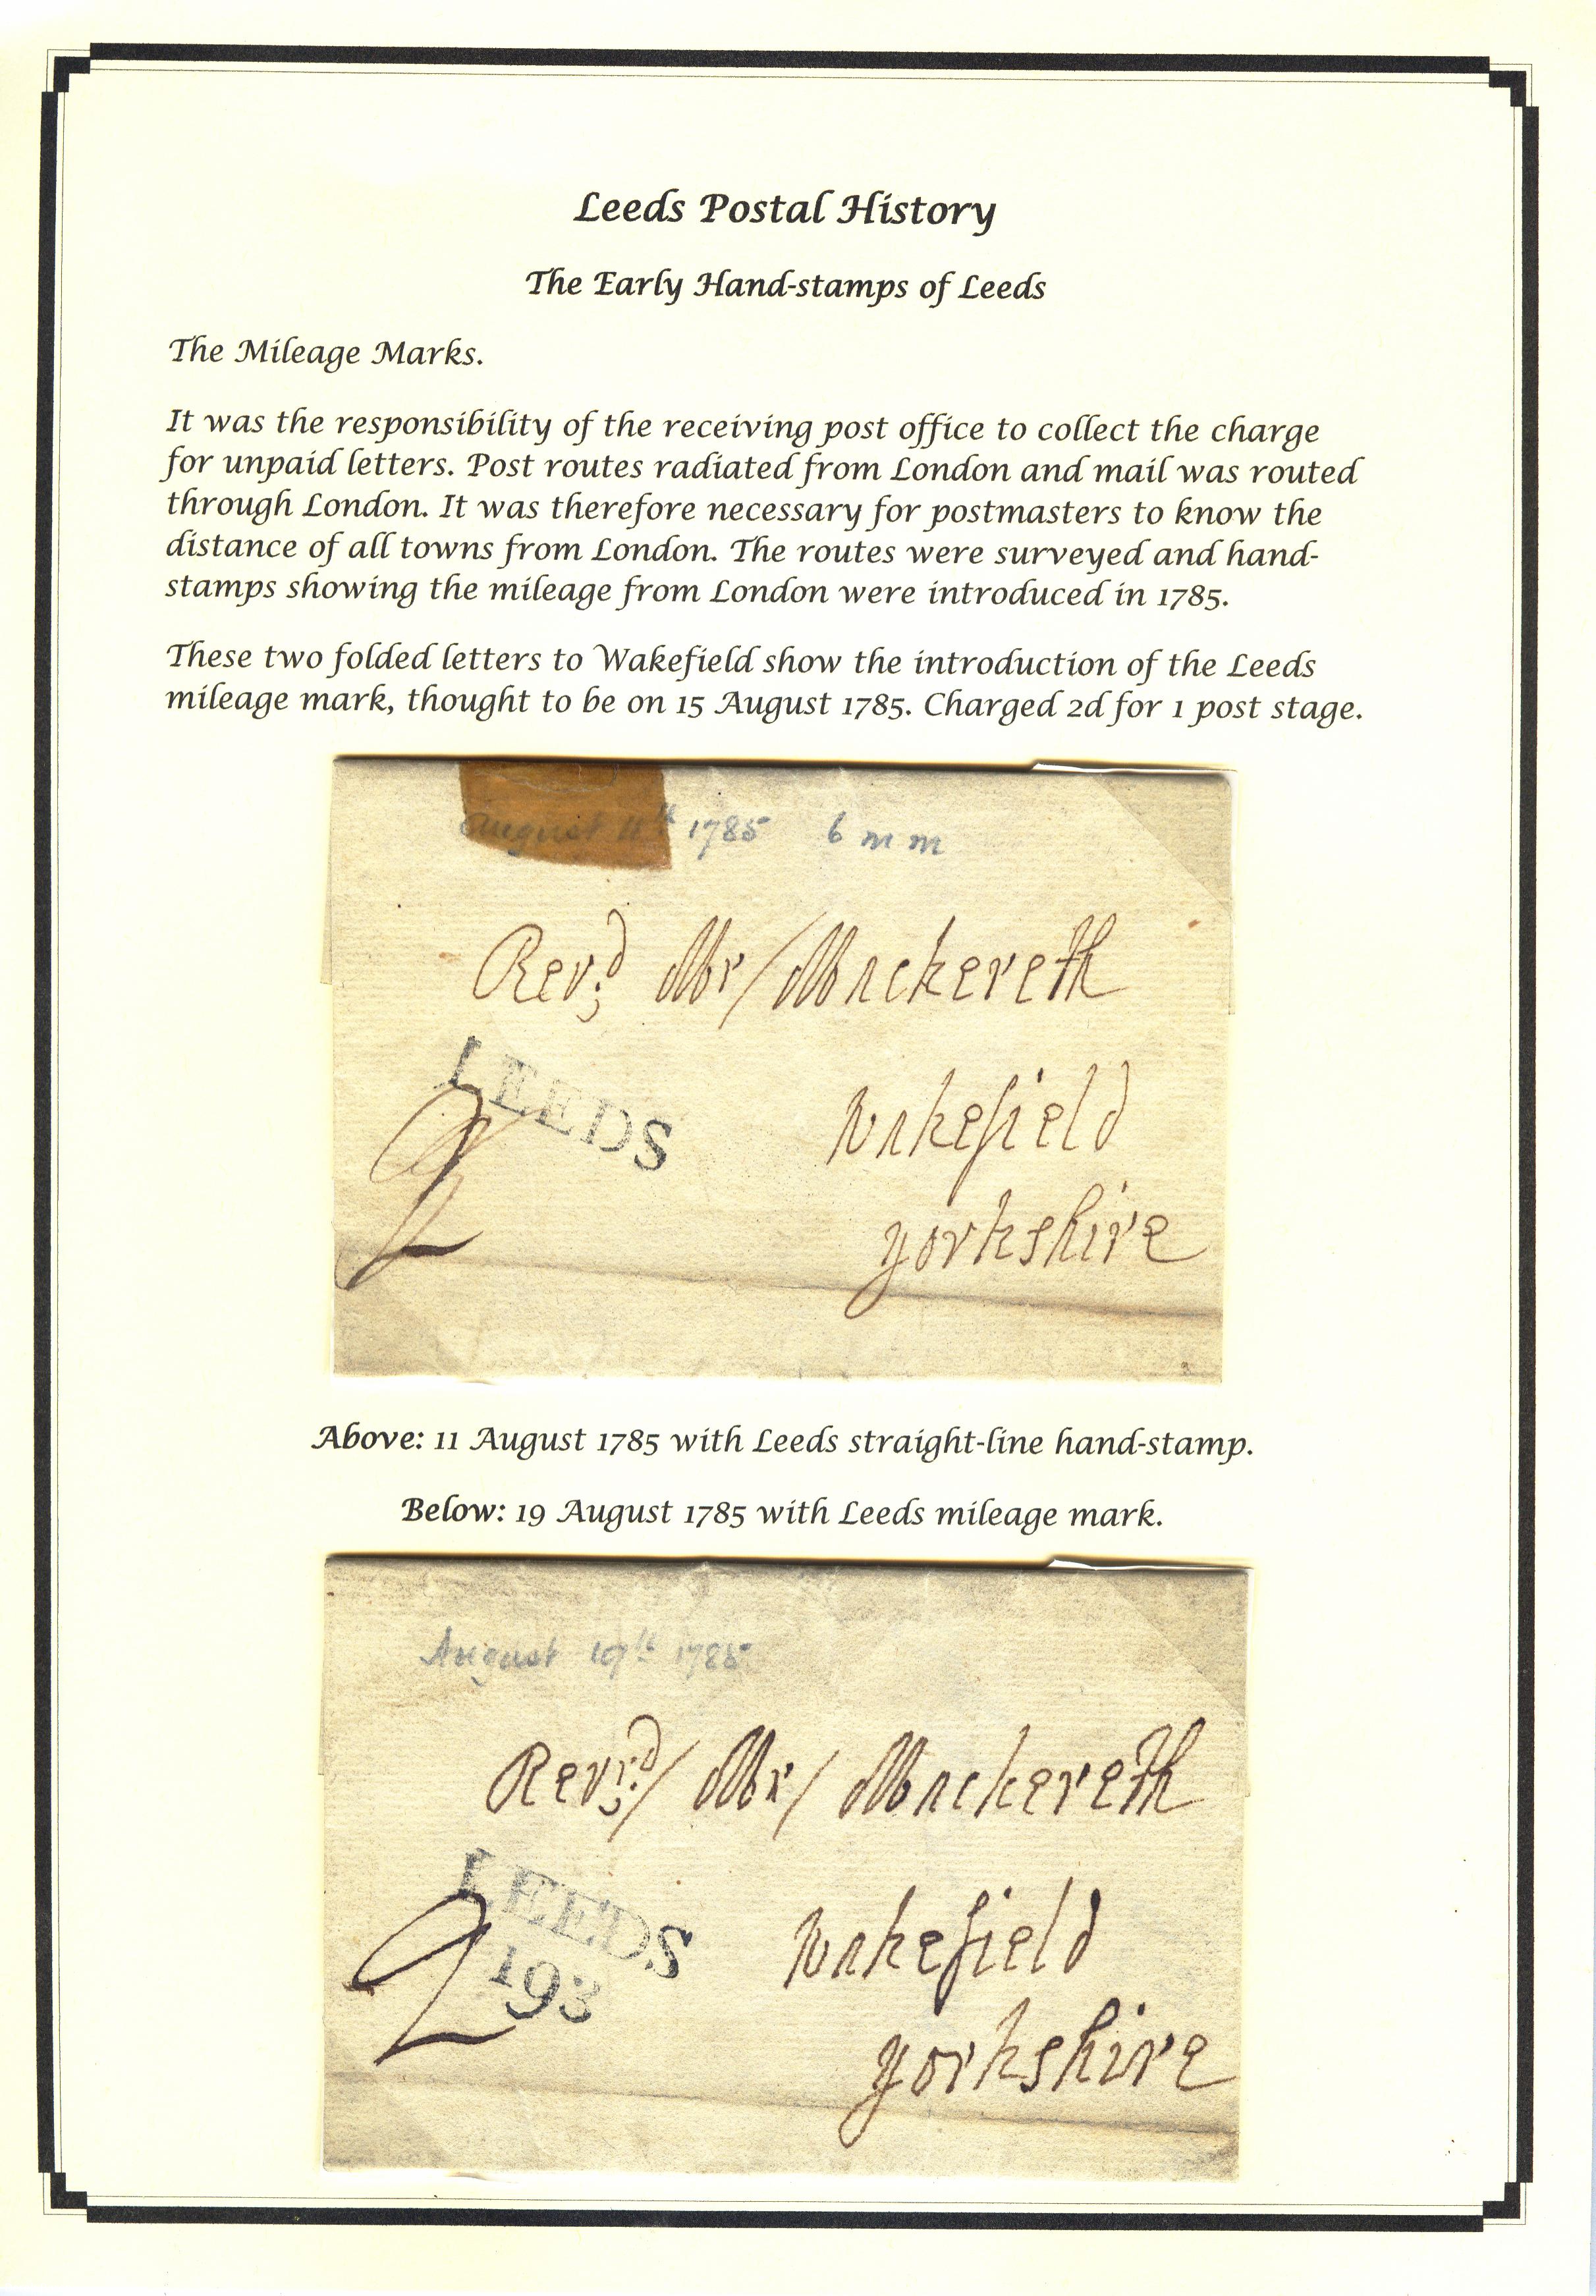 Leeds Postal History
The Early Hand-stamps of Leeds
The Mileage Marks.
It was the responsibility of the receiving post office to collect the charge
for unpaid letters. Post routes radiated from London and mail was routed
through London. It was therefore necessary for postmasters to know the
distance of all towns from London. The routes were surveyed and hand-
stamps showing the mileage from London were introduced in 1785.
These two folded letters to Wakefield show the introduction of the Leeds
mileage mark, thought to be on 15 August 1785. Charged 2d for 1 post stage.
August 11th 1785 6 m m
Revd Mr/Mackereth
LEEDS
2
Wakefield
Yorkshire
Above: 11 August 1785 with Leeds straight-line hand-stamp.
Below: 19 August 1785 with Leeds mileage mark.
August 19th 1785
Revrd/ Mr/ Mackereth
LEEDS
193
2
Wakefield
Yorkshire